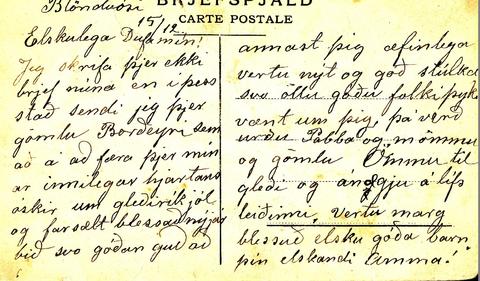 Blönduósi
BRJEFSPJALD
CARTE POSTALE
15/12
Elskulega Dúfa mín!
Jeg skrifa þjer ekki
brjef núna en í þess
stað sendi jeg þjer
gömlu Borðeyri sem
að á að færa þjer mín
ar innilegar hjartans
óskir um gleðirík jól
og farsælt blessað nýjár
bið svo góðan guð að
annast þig æfinlega
vertu nýt og góð stúlka
svo öllu góðu fólki þyk
vænt um þig, þá verð
urðu Pabba og mömmu
og gömlu Ömmu til
gleði og ánægju á lífs
leiðinni, vertu marg
blessuð elsku góða barn
þín elskandi Amma!